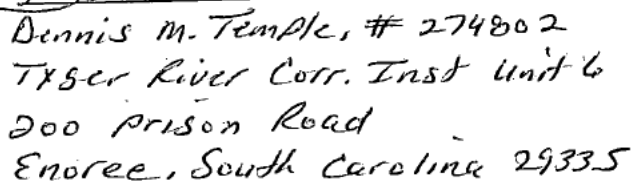 Dennis M. Temple, # 274802
Tyger River Corr. Inst Unit 6
200 prison Road
Enoree, South Carolina 29335